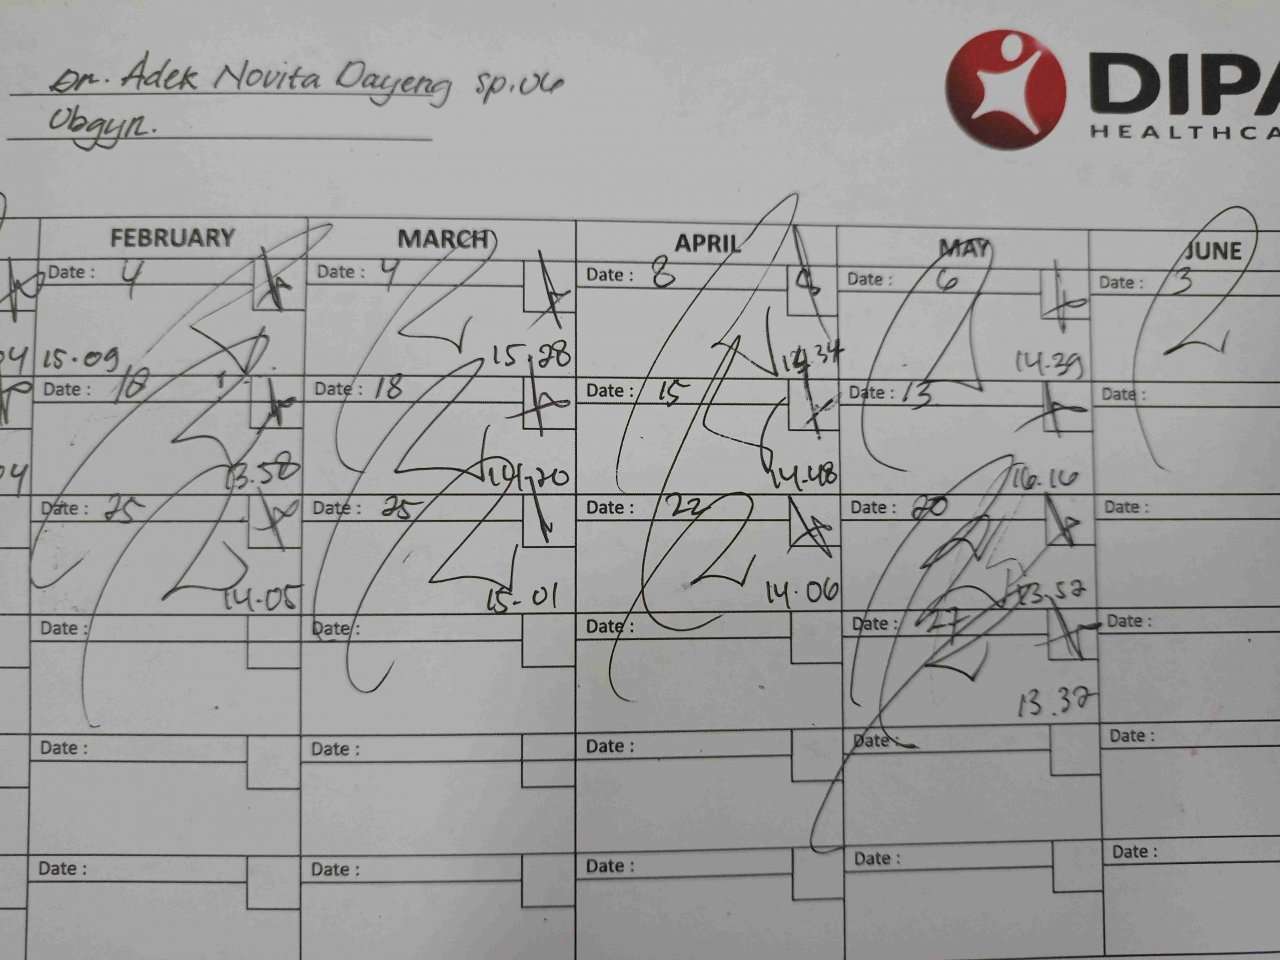 Dr. Adek Novita Dayeng Sp.OG
Obgyn.
DIPA
HEALTHCA
FEBRUARY MARCH APRIL MAY JUNE
Date : 4 Date : 4 Date : 8 Date : 6 Date : 3
04 15.09 15.28 14.34 14.39
Date : 18 Date : 18 Date : 15 Date : 13 Date :
04 13.58 14.20 14.48 16.16
Date : 25 Date : 25 Date : 22 Date : 20 Date :
14.05 15.01 14.06 13.52
Date : Date : Date : Date : 27 Date :
13.32
Date : Date : Date : Date : Date :
Date : Date : Date : Date : Date :